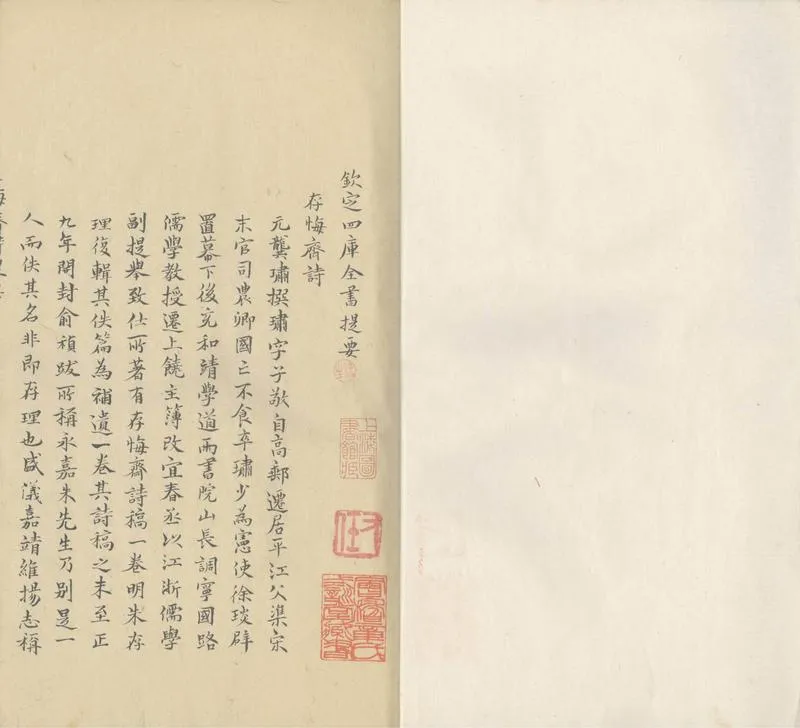 欽定四庫全書提要
存悔齋詩
元龔璛撰璛字子敬自高郵遷居平江父渠宋
末官司農卿國亡不食卒璛少為憲使徐琰辟
置幕下後充和靖學道兩書院山長調寧國路
儒學教授遷上饒主簿改宜春丞以江浙儒學
副提舉致仕所著有存悔齋詩稿一卷明朱存
理復輯其佚篇為補遺一卷其詩稿之末至正
九年開封俞楨跋所稱永嘉朱先生乃别是一
人而佚其名非即存理也盛儀嘉靖維揚志稱
上海圖書館藏